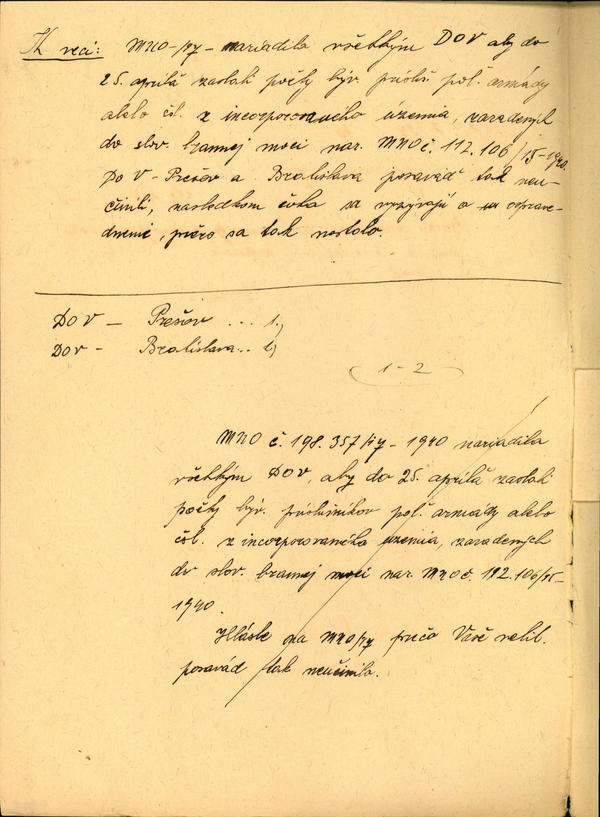 K veci: MNO-/17- nariadilo všetkým DOV aby do
25. aprílá zaslali počty býv. prísluš. poľ. armády
alebo čsl. z incorporovaného územia, zaradených
do slov. brannej moci nar. MNO č. 112.106/15-1940.
DOV - Prešov a Bratislava posavád tak neu-
činili, následkom čoho sa vyzývajú o osprave-
dlnenie, prečo sa tak nestalo.
DOV - Prešov ... 1.)
DOV - Bratislava .. 2.)
1-2
MNO č. 198.357/17-1940 nariadilo
všetkým DOV, aby do 25. aprílá zaslali
počty býv. príslušníkov poľ. armády alebo
čsl. z incorporovaného územia, zaradených
do slov. brannej moci nar. MNO č. 112.106/15-
1940.
Hláste na MNO/17 prečo Vaše velit.
posavád tak neučinilo.